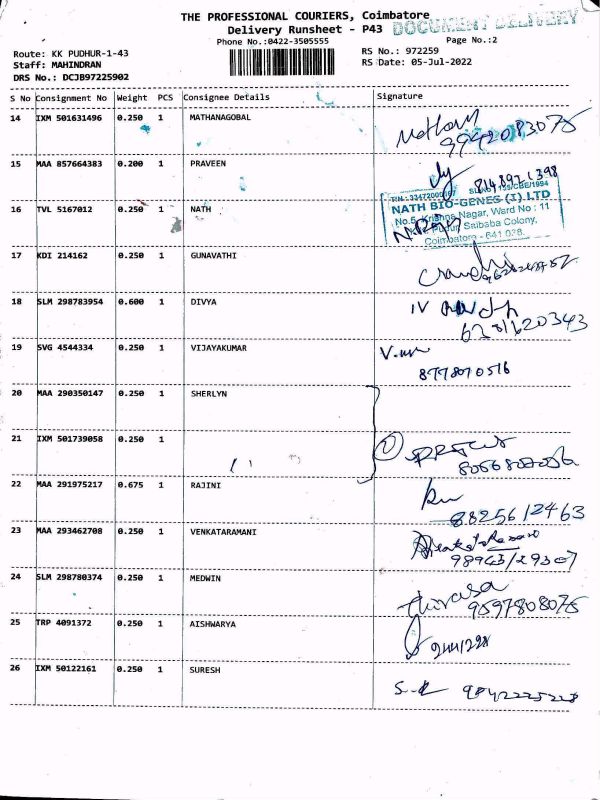 THE PROFESSIONAL COURIERS, Coimbatore
Delivery Runsheet - P43
DOCUMENT DELIVERY
Phone No.:0422-3505555
Page No.:2
Route: KK PUDHUR-1-43
RS No.: 972259
Staff: MAHINDRAN
RS Date: 05-Jul-2022
DRS No.: DCJB97225902
S No Consignment No Weight PCS Consignee Details Signature
14 IXM 501631496 0.250 1 MATHANAGOBAL
9942083075
15 MAA 857664383 0.200 1 PRAVEEN
8148921398
16 TVL 5167012 0.250 1 NATH
NATH BIO-GENES (I) LTD
No.5, Krishna Nagar, Ward No : 11
Saibaba Colony,
Coimbatore - 641 038.
17 KDI 214162 0.250 1 GUNAVATHI
18 SLM 298783954 0.600 1 DIVYA
6281620343
19 SVG 4544334 0.250 1 VIJAYAKUMAR
8778070516
20 MAA 290350147 0.250 1 SHERLYN
21 IXM 501739058 0.250 1
22 MAA 291975217 0.675 1 RAJINI
8825612463
23 MAA 293462708 0.250 1 VENKATARAMANI
98943129307
24 SLM 298780374 0.250 1 MEDWIN
9597808075
25 TRP 4091372 0.250 1 AISHWARYA
26 IXM 50122161 0.250 1 SURESH
9842225228